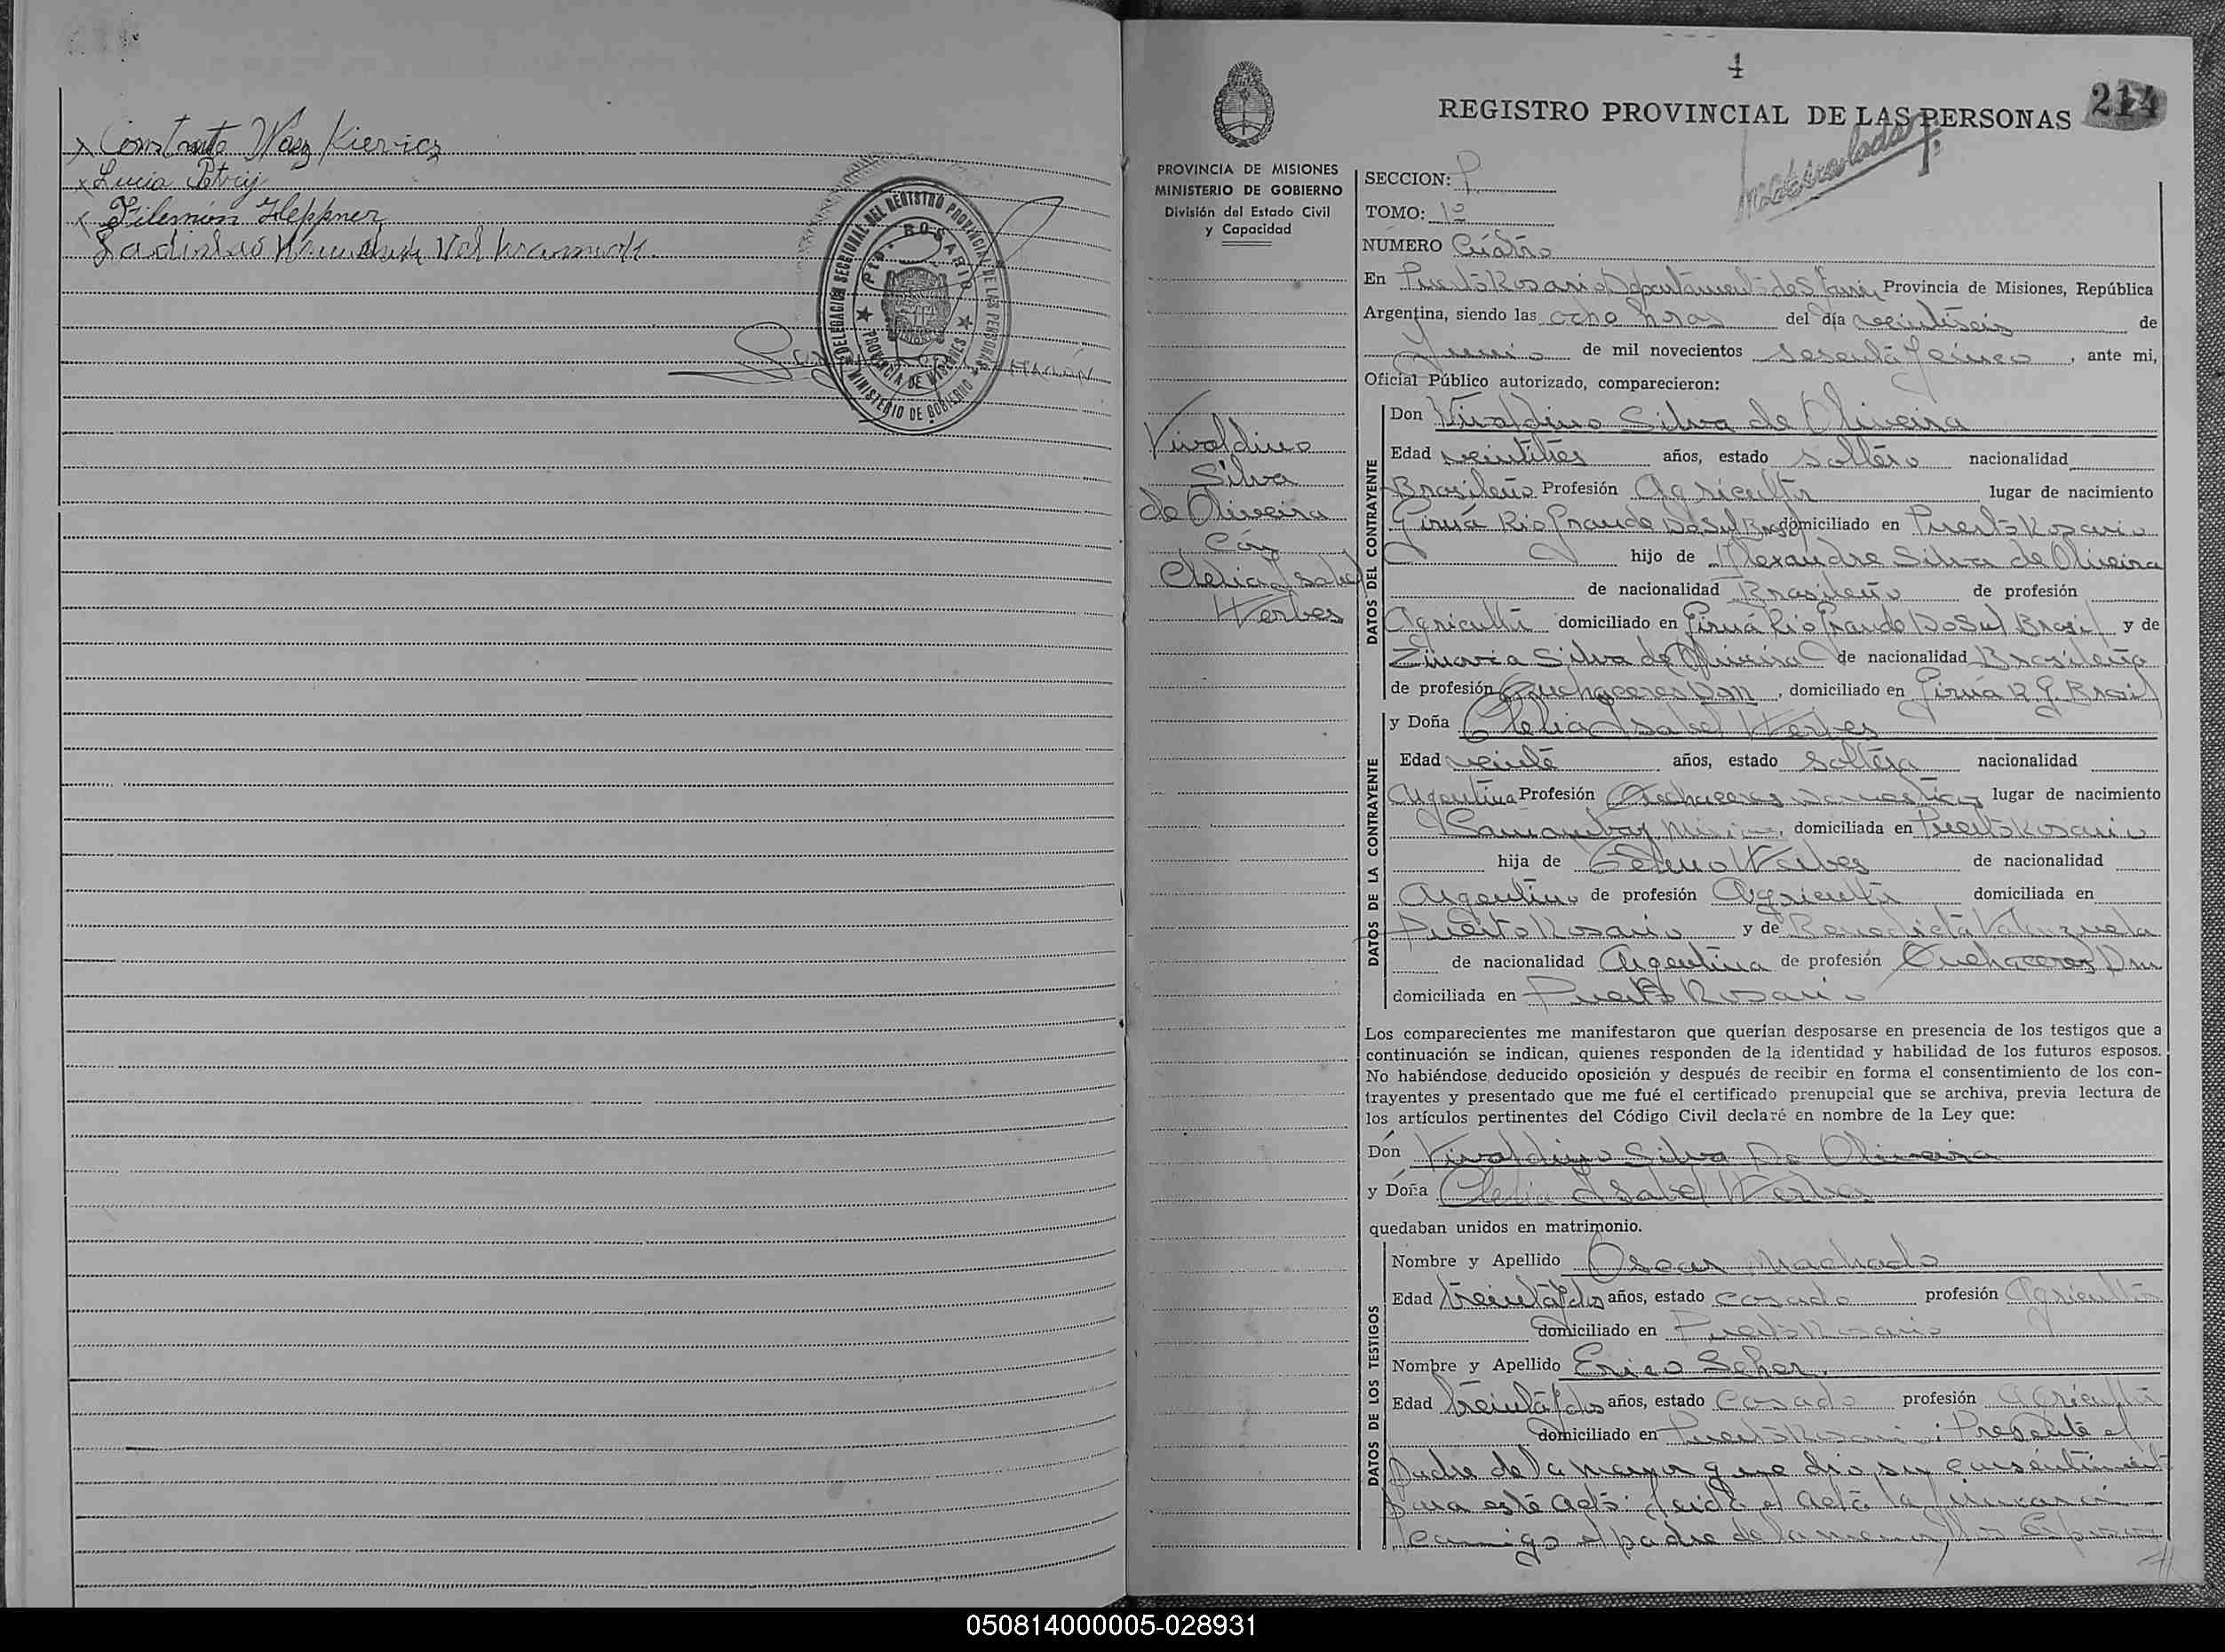 x Constante Waz Kievicz
x Lucia Petryj
x Filemón Heppner
Ladislao
DELEGACIÓN SECCIONAL DEL REGISTRO PROVINCIAL DE LAS PERSONAS
Pto. ROSARIO
PROVINCIA DE MISIONES
MINISTERIO DE GOBIERNO
4
REGISTRO PROVINCIAL DE LAS PERSONAS
214
PROVINCIA DE MISIONES
MINISTERIO DE GOBIERNO
División del Estado Civil
y Capacidad
Vivaldino
Silva
de Oliveira
Con
Clelia Isabel
Werbes
SECCION: P.
TOMO: 12
NUMERO Cuatro
En Puerto Rosario Departamento de S Javier Provincia de Misiones, República
Argentina, siendo las ocho horas del día veintiseis de
Junio de mil novecientos sesenta y cinco, ante mi,
Oficial Público autorizado, comparecieron:
DATOS DEL CONTRAYENTE
Don Vivaldino Silva de Oliveira
Edad veintitres años, estado soltero nacionalidad
Brasileño Profesión Agricultor lugar de nacimiento
Giruá Rio Grande Do Sul Brasil domiciliado en Puerto Rosario
hijo de Alexandre Silva de Oliveira
de nacionalidad Brasileño de profesión
Agricultor domiciliado en Giruá Rio Grande Do Sul Brasil y de
Silva de Oliveira de nacionalidad Brasileña
de profesión Quehaceres Dom, domiciliado en Giruá R G. Brasil
DATOS DE LA CONTRAYENTE
y Doña Clelia Isabel Werbes
Edad veinte años, estado Soltera nacionalidad
Argentina Profesión Quehaceres Domesticos lugar de nacimiento
Misiones, domiciliada en Puerto Rosario
hija de Werbes de nacionalidad
Argentino de profesión Agricultor domiciliada en
Puerto Rosario y de Benedicta Valenzuela
de nacionalidad Argentina de profesión Quehaceres Dom
domiciliada en Puerto Rosario
Los comparecientes me manifestaron que querían desposarse en presencia de los testigos que a
continuación se indican, quienes responden de la identidad y habilidad de los futuros esposos.
No habiéndose deducido oposición y después de recibir en forma el consentimiento de los con-
trayentes y presentado que me fué el certificado prenupcial que se archiva, previa lectura de
los artículos pertinentes del Código Civil declaré en nombre de la Ley que:
Don Vivaldino Silva De Oliveira
y Doña Clelia Isabel Werbes
quedaban unidos en matrimonio.
DATOS DE LOS TESTIGOS
Nombre y Apellido Oscar Machado
Edad treinta y dos años, estado casado profesión Agricultor
domiciliado en Puerto Rosario
Nombre y Apellido Erico Scher.
Edad treinta y dos años, estado Casado profesión Agricultor
domiciliado en Puerto Rosario; Presente el
padre de la menor que dio su consentimiento
para este acto. Leida el acta la firmaron
conmigo el padre de la menor, los Esposos
050814000005-028931